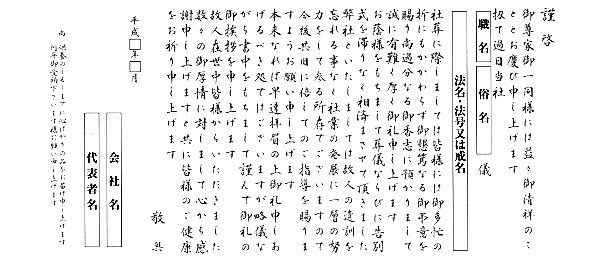 謹啓
御尊家御一同様には益々御清祥のこ
ととお慶び申し上げます
扨て過日当社
職名
俗名
儀
法名・法号又は戒名
社葬に際しましては皆様には御多忙の
折にもかかわらず御懇篤なる御弔意を
賜り尚過分なる御香志に預かりまして
誠に有難く厚く御礼申し上げます
お蔭様をもちまして葬儀ならびに告別
式を滞りなく相済ませて頂きました
弊社といたしましては故人の遺訓を
忘れる事なく社業の発展に一層の努
力をして参る所存でございますので
今後共旧に倍してのご指導を賜りま
すようお願い申し上げます
本来なれば早速拝眉の上御礼申しあ
げるべき処ではございますが略儀な
がら書中をもちまして謹んで御礼の
御挨拶を申し上げます
故人在世中皆様からいただきました
数々の御厚情に対しまして心から感
謝申し上げますと共に皆様のご健康
をお祈り申し上げます
敬具
平成□年□月
会社名
代表者名
尚 供養のしるしまでに心ばかりの品をお届け申し上げます
何卒御受納下さいます様お願い申し上げます